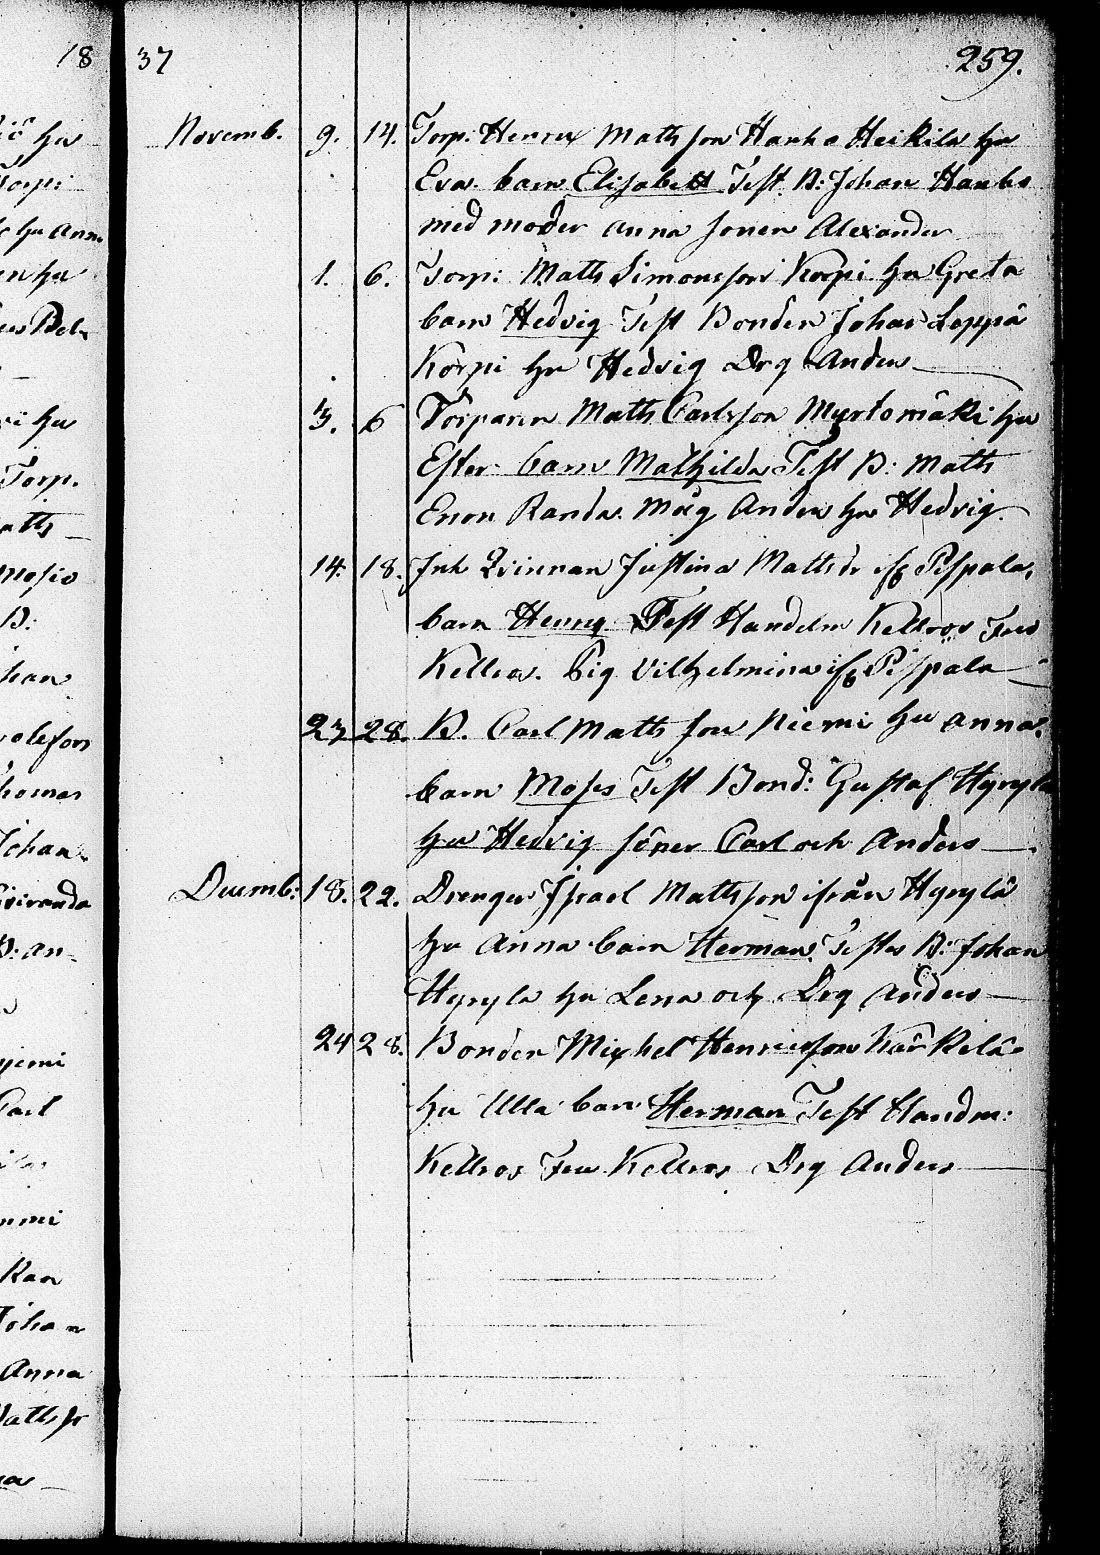 18
37
259.
Novemb. 9. 14. Torp: Henrix Mathsson Hanka Heikila hu
Eva barn Elisabett Test B: Johan Hanka
med moder anna sonen Alexander
1. 6. Torp: Maths Simonsson Korpi hu Greta
barn Hedvig Test Bonden Johan Leppä
Korpi hu Hedvig Drg Anders
3. 6 Torparen Maths Carlsson Myrtomäki hu
Ester barn Mathilda Test B: Maths
Randa Måg Anders hu Hedvig.
14. 18. Inh Qvinnan Justina Mattsdr Pispala,
barn Henrry Test Handelm Kellros Fru
Kellros. Pig Vilhelmina Pispala
23 28. B. Carl Maths son Niemi hu anna.
barn Moses Test Bond: Gustaf Hyryla
hu Hedvig söner Carl och Anders
Decemb: 18. 22. Drengen Israel Mathsson ifrån Hyrylä
hu Anna barn Herman Testes B: Johan
Hyryla hu Lena och Drg Anders
24 28. Bonden Mixhel Henricsson Kärkelä
hu Ulla barn Herman Test Handm:
Kellros Fru Kellros Drg Anders
hu
Torpi
hu Anna
hu
hu
Torp.
B:
Johan
B: An-
Carl
Johan
Anna